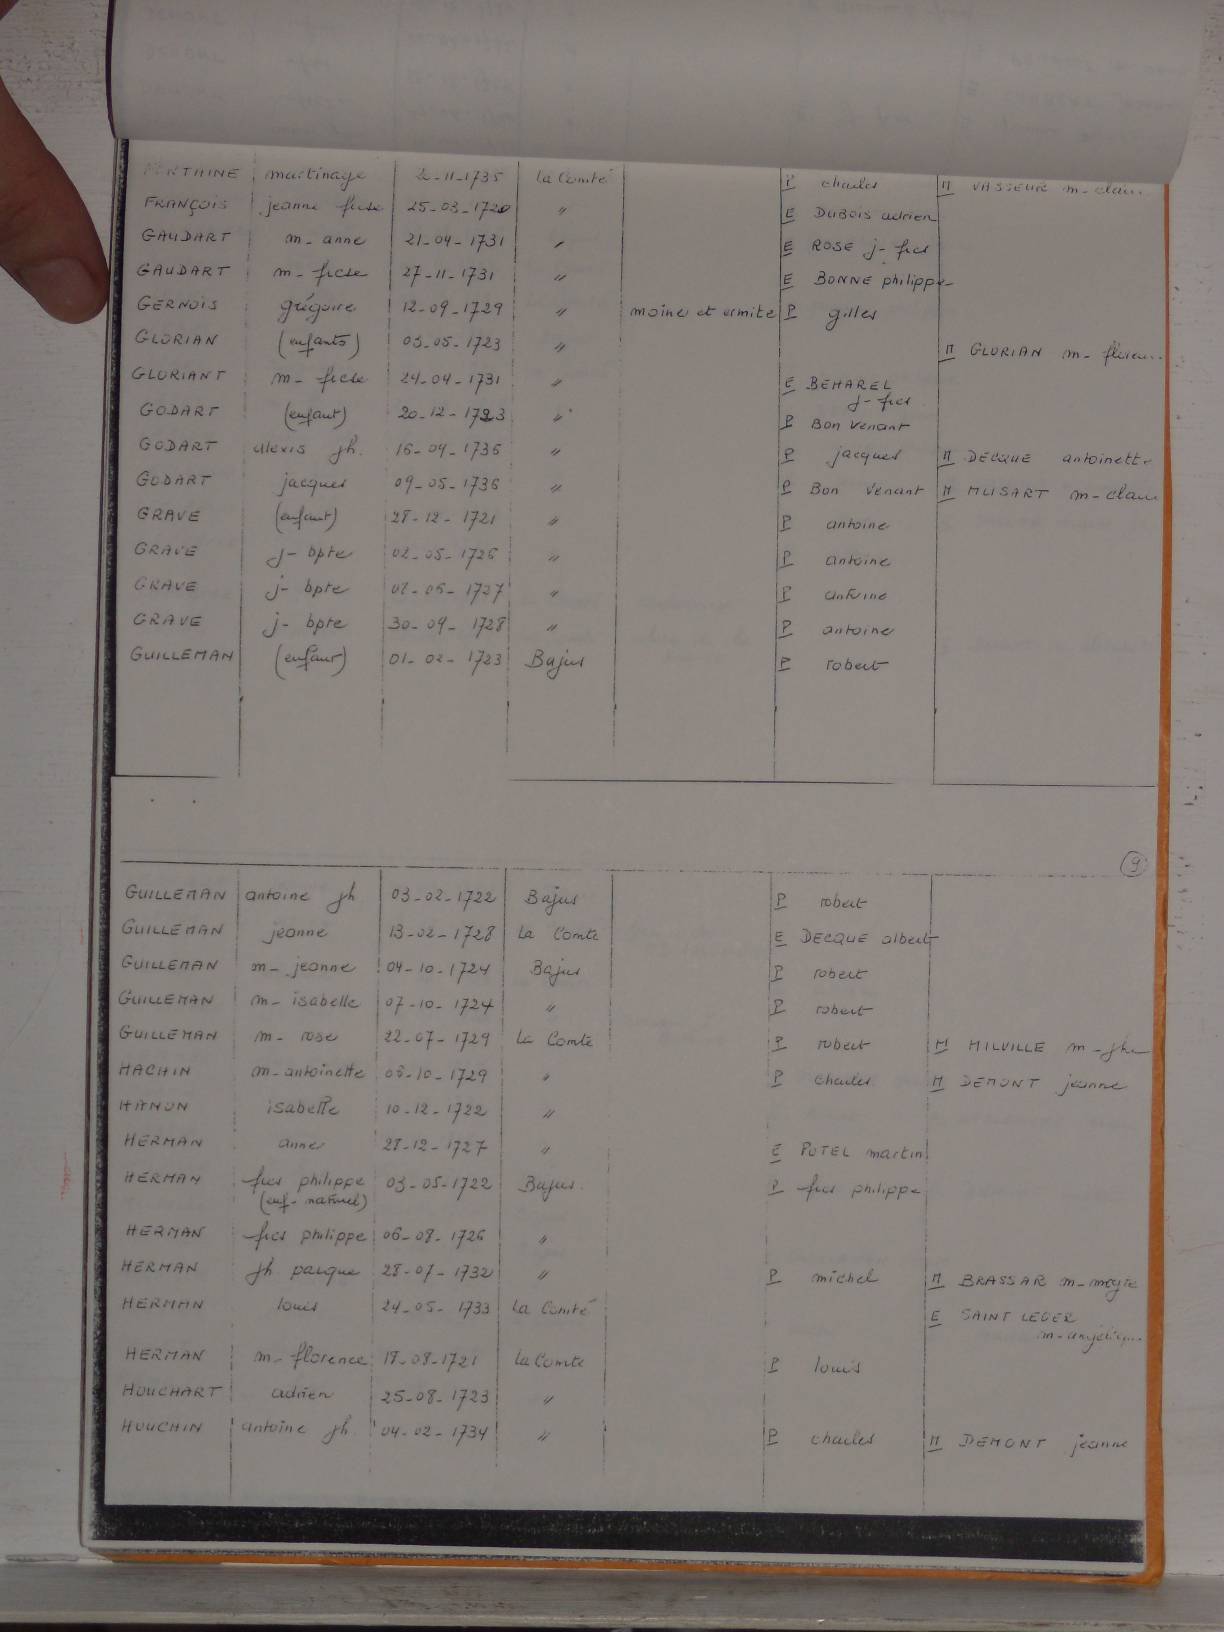 martinage -11-1735 la Comté P charles M VASSEUR m-claire
FRANÇOIS jeanne fcse 25-03-1720 " E DUBOIS adrien
GAUDART m-anne 21-04-1731 " E ROSE j-fcs
GAUDART m-fcse 27-11-1731 " E BONNE philippe
GERNOIS grégoire 12-09-1729 " moine et ermite P gilles
GLORIAN (enfants) 03-05-1723 " M GLORIAN m-
GLORIANT m-fcse 24-04-1731 " E BEHAREL
j-fcs
GODART (enfant) 20-12-1723 " P Bon Venant
GODART alexis jh. 16-04-1736 " P jacques M DECQUE antoinette
GODART jacques 09-05-1736 " P Bon Venant M MUSART m-claire
GRAVE (enfant) 28-12-1721 " P antoine
GRAVE j-bpte 02-05-1726 " P antoine
GRAVE j-bpte 02-06-1727 " P antoine
GRAVE j-bpte 30-09-1728 " P antoine
GUILLEMAN (enfant) 01-02-1723 Bajus P robert
9
GUILLEMAN antoine jh 03-02-1722 Bajus P robert
GUILLEMAN jeanne 13-02-1728 La Comte E DECQUE albert
GUILLEMAN m-jeanne 04-10-1724 Bajus P robert
GUILLEMAN m-isabelle 07-10-1724 " P robert
GUILLEMAN m-rose 22-07-1729 La Comte P robert M MILVILLE m-jhe
HACHIN m-antoinette 08-10-1729 " P charles M DEMONT jeanne
HANON isabelle 10-12-1722 "
HERMAN anne 28-12-1727 " E POTEL martin
HERMAN fcs philippe 03-05-1722 Bajus P fcs philippe
(enf-naturel)
HERMAN fcs philippe 06-08-1726 "
HERMAN jh pasque 28-07-1732 " P michel M BRASSAR m-mgte
HERMAN louis 24-05-1733 La Comté E SAINT LEGER
m-angélique
HERMAN m-florence 18-08-1721 La Comte P louis
HOUCHART adrien 25-08-1723 "
HOUCHIN antoine jh 04-02-1734 " P charles M DEMONT jeanne